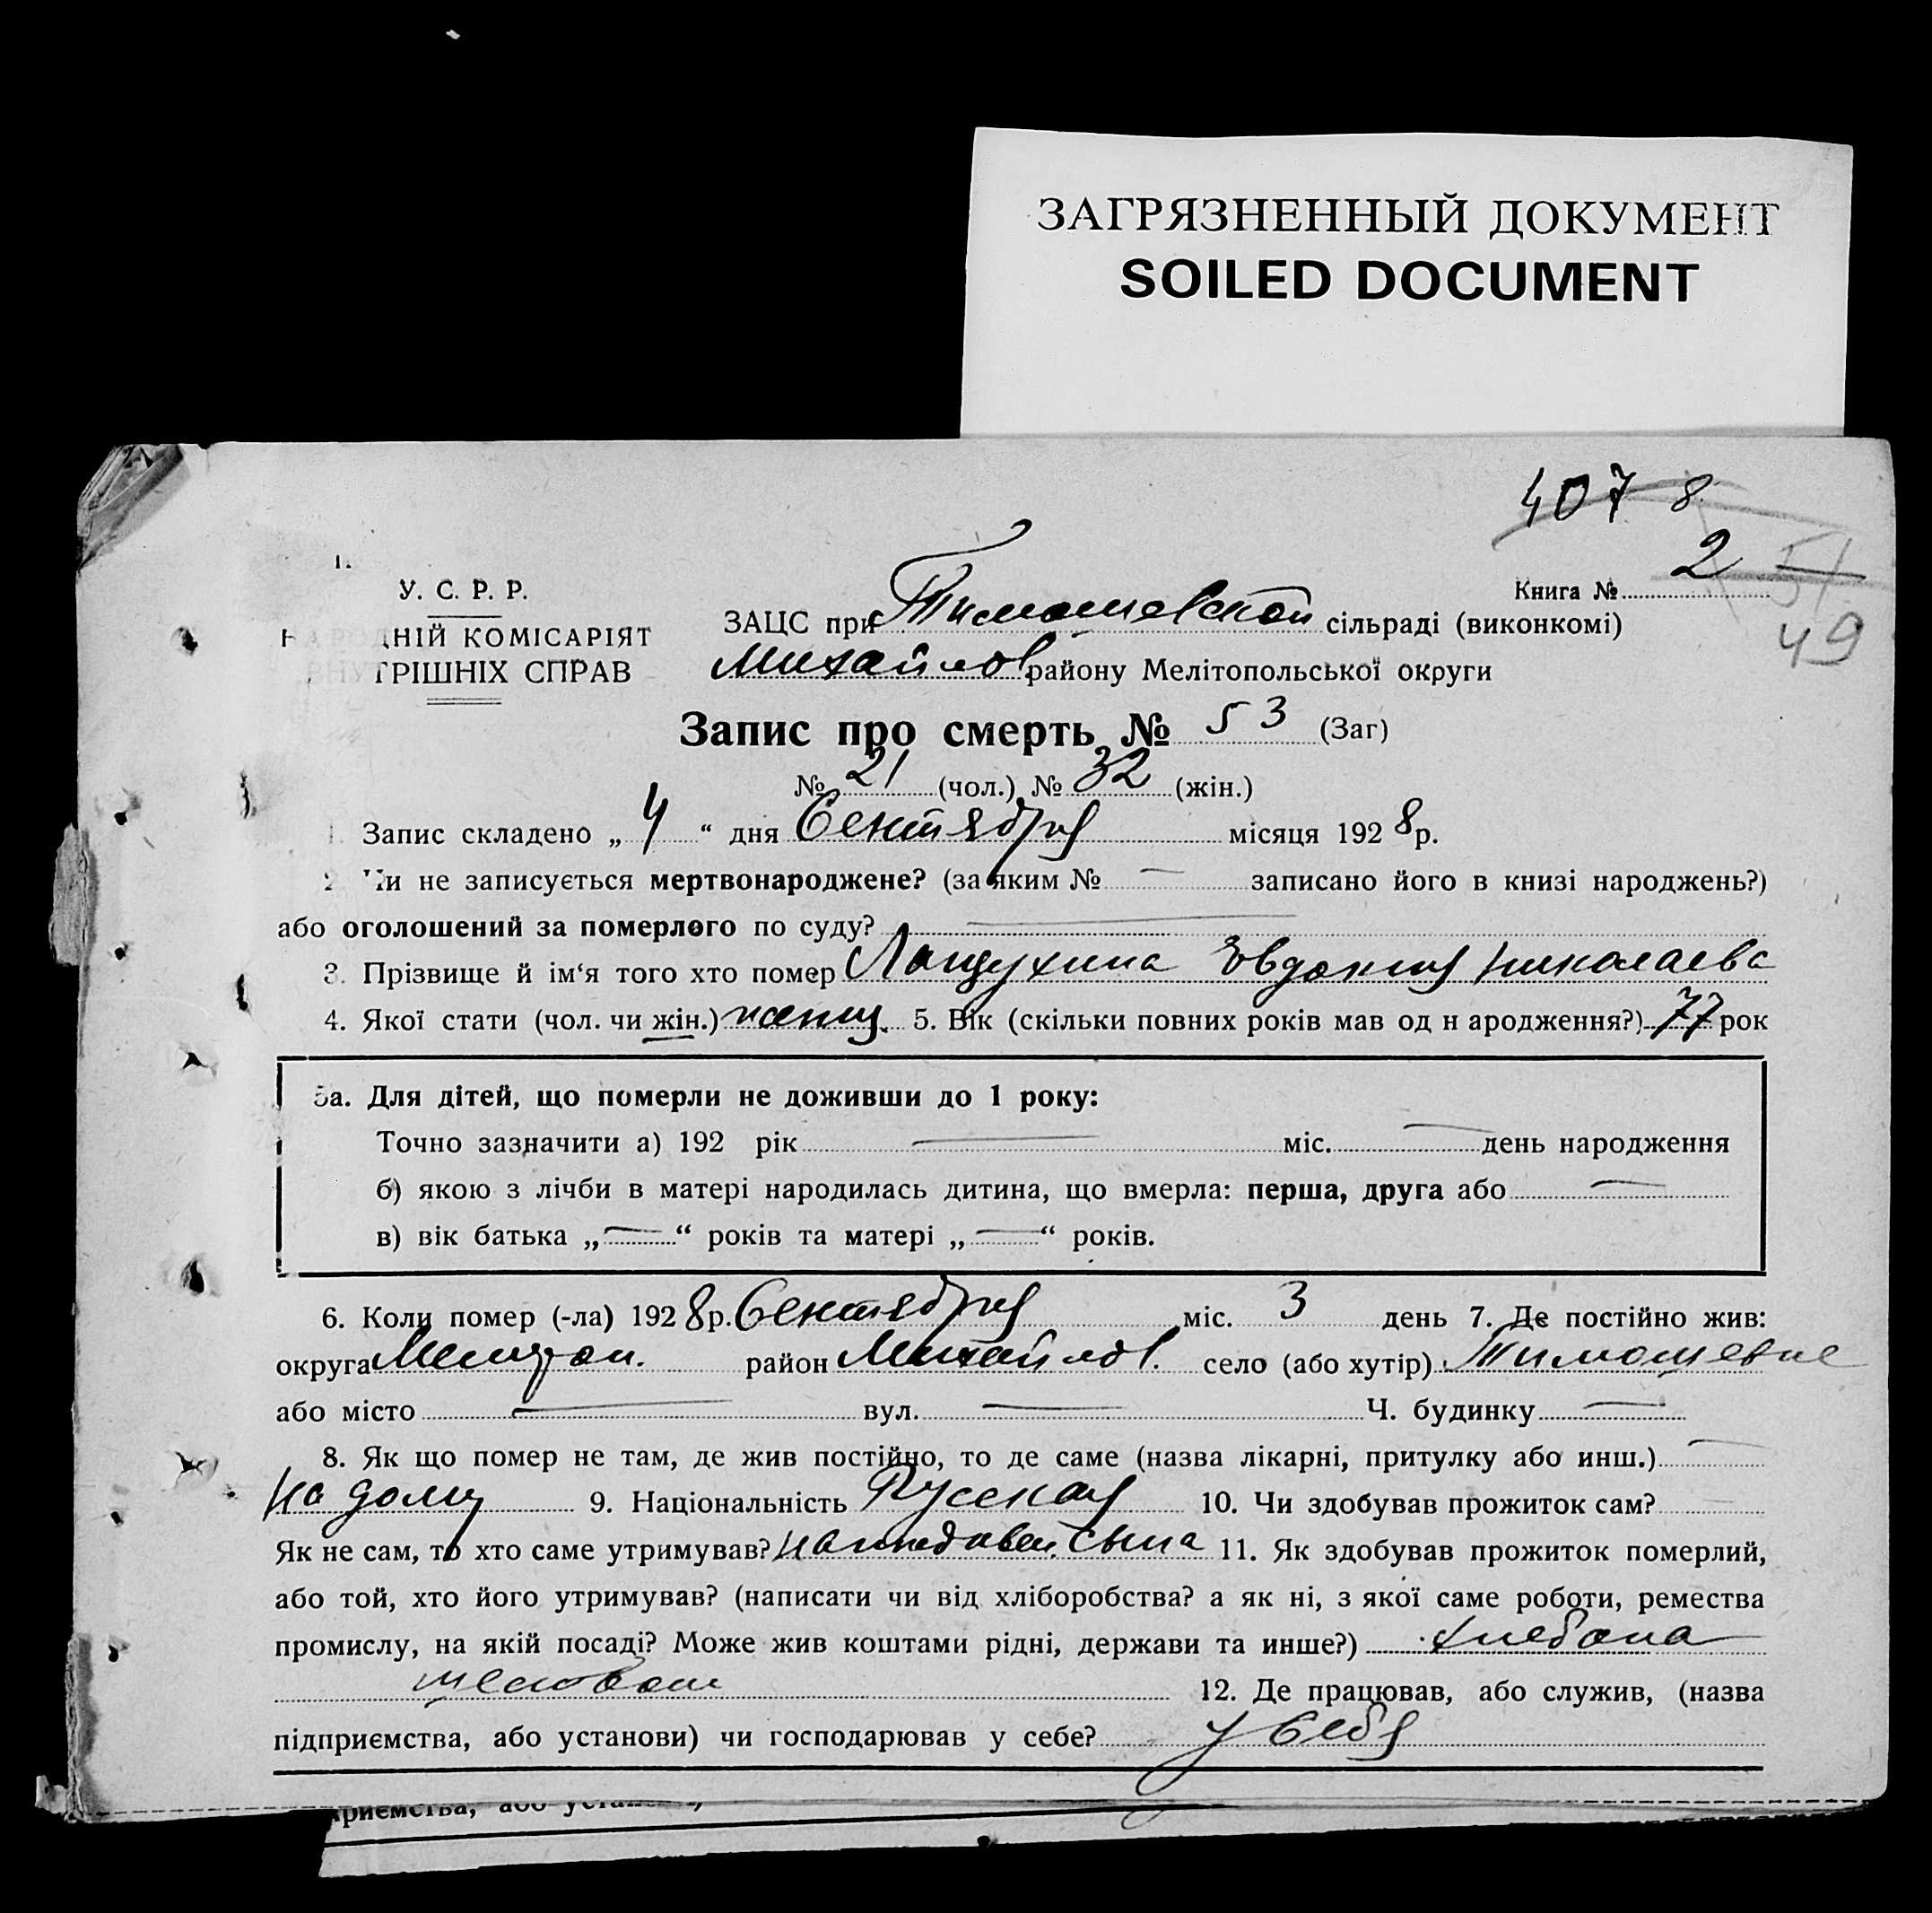 ЗАГРЯЗНЕННЫЙ ДОКУМЕНТ
SOILED DOCUMENT
407 8
1.
У. С. Р. Р.
НАРОДНІЙ КОМІСАРІЯТ
ВНУТРІШНІХ СПРАВ
Книга № 2 51
49
ЗАЦС при Тимошевской сільраді (виконкомі)
Михайлов району Мелітопольської округи
Запис про смерть № 53 (Заг)
№ 21 (чол.) № 32 (жін.)
1. Запис складено „ 4 “ дня Сентября місяця 1928 р.
2. Чи не записується мертвонароджене? (за яким № — записано його в книзі народжень?)
або оголошений за померлого по суду? —
3. Прізвище й ім‘я того хто помер Евдокия Николаева
4. Якої стати (чол. чи жін.) 5. Вік (скільки повних років мав од н ародження?) 77 рок
5а. Для дітей, що померли не доживши до 1 року:
Точно зазначити а) 192 рік — міс. — день народження
б) якою з лічби в матері народилась дитина, що вмерла: перша, друга або —
в) вік батька „ — “ років та матері „ — “ років.
6. Коли помер (-ла) 1928 р. Сентября міс. 3 день 7. Де постійно жив:
округа Мелитоп. район Михайлов. село (або хутір) Тимошевке
або місто — вул. — Ч. будинку —
8. Як що помер не там, де жив постійно, то де саме (назва лікарні, притулку або инш.) —
на дому 9. Національність Русская 10. Чи здобував прожиток сам?
Як не сам, то хто саме утримував? на иждивен. сына 11. Як здобував прожиток померлий,
або той, хто його утримував? (написати чи від хліборобства? а як ні, з якої саме роботи, ремества
промислу, на якій посаді? Може жив коштами рідні, держави та инше?) хлебопа
шеством 12. Де працював, або служив, (назва
підприємства, або установи) чи господарював у себе? у себя
приємства, або установи)